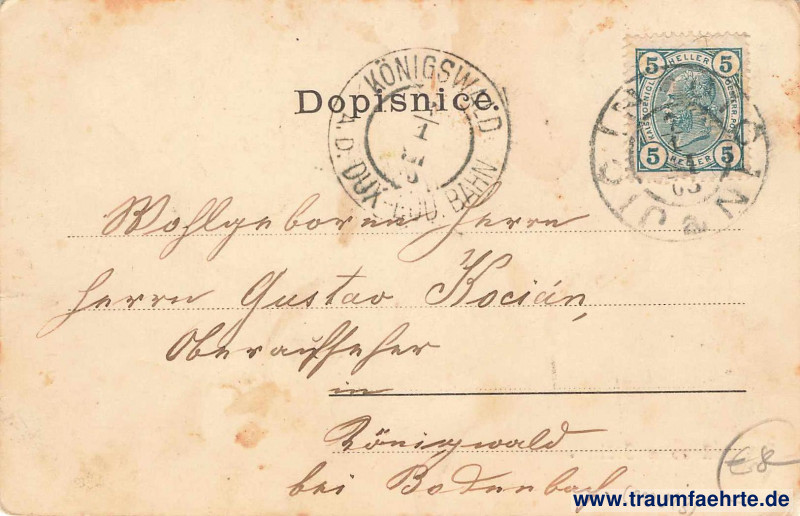 Dopisnice.
KÖNIGSWALD
A. D. DUX-BOD. BAHN
5 HELLER 5
5 HELLER 5
Wohlgeboren Herrn
Herrn Gustav Kocián,
Oberaufseher
in
Königwald
bei Bodenbach
€8
www.traumfaehrte.de